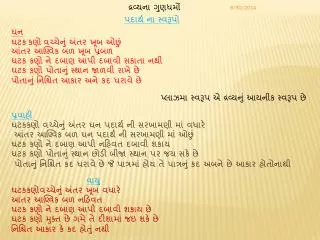 દ્રવ્યના ગુણધર્મો
8/30/2014
પદાર્થ ના સ્વરૂપો
ઘન
ઘટક કણો વચ્ચેનું અંતર ખૂબ ઓછું
આંતર આણ્વિક બળ ખૂબ પ્રબળ
ઘટક કણો ને દબાણ આપી દબાવી સકાતા નથી
ઘટક કણો પોતાનું સ્થાન જાળવી રાખે છે
પોતાનું નિશ્ચિત આકાર અને કદ ધરાવે છે
પ્લાઝમા સ્વરૂપ એ દ્રવ્યનું આયનીક સ્વરૂપ છે
પ્રવાહી
ઘટકકણો વચ્ચેનું અંતર ઘન પદાર્થ ની સરખામણી માં વધારે
આંતર આણ્વિક બળ ઘન પદાર્થ ની સરખામણી માં ઓછું
ઘટક કણો ને દબાણ આપી નહિવત દબાવી શકાય
ઘટક કણો પોતાનું સ્થાન છોડી બીજા સ્થાન પર જય સકે છે
પોતાનું નિશ્ચિત કદ ધરાવે છે જે પાત્રમાં હોય તે પાત્રનું કદ અબને છે આકાર હોતોનાથી
વાયુ
ઘટકકણોવચ્ચેનું અંતર ખૂબ વધારે
આંતર આણ્વિક બળ નહિવત
ઘટક કણો ને દબાણ આપી દબાવી શકાય છે
ઘટક કણો મુક્ત છે ગમે તે દીશામાં જઇ શકે છે
નિશ્ચિત આકાર કે કદ હોતું નથી